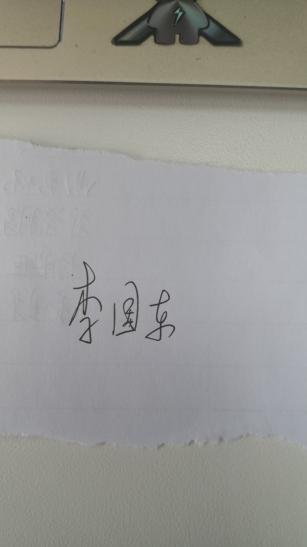 李国东